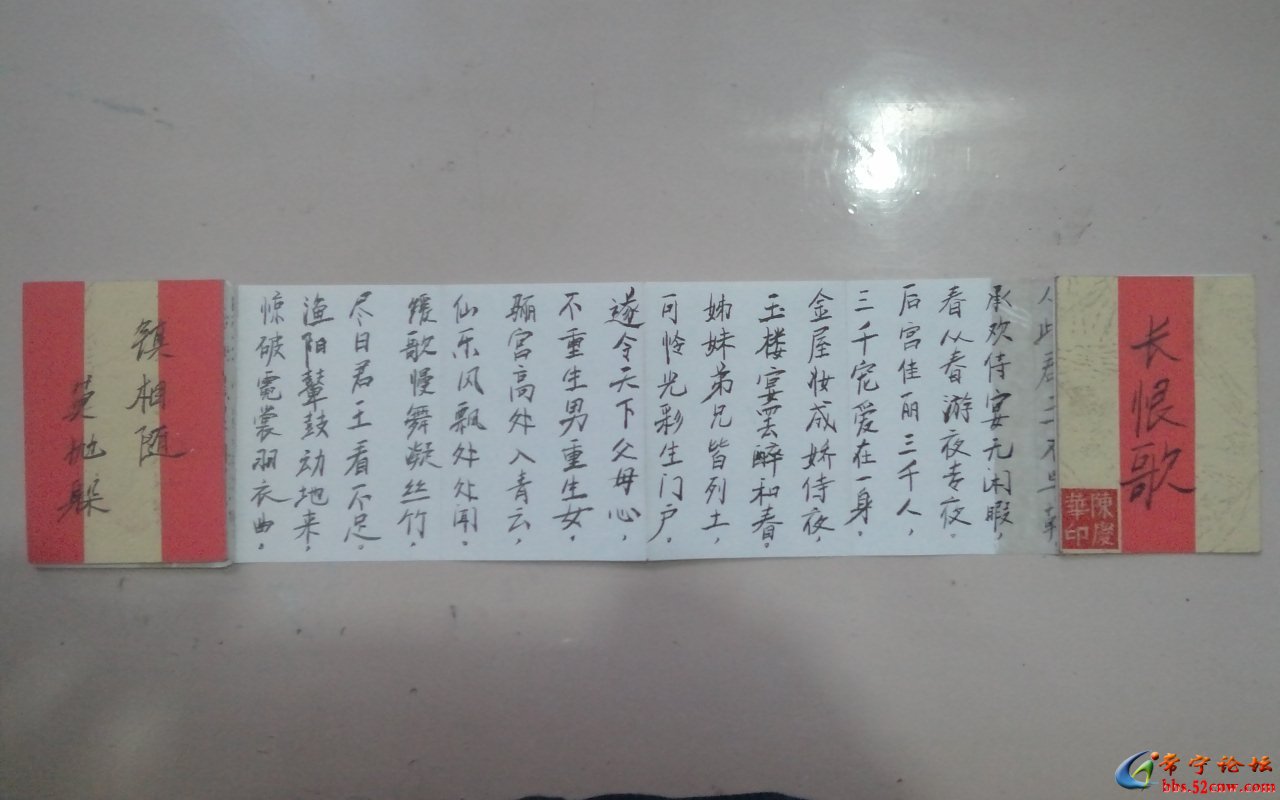 长恨歌
陳慶
華印
此君王不早
承欢侍宴无闲暇，
春从春游夜专夜。
后宫佳丽三千人，
三千宠爱在一身。
金屋妆成娇侍夜，
玉楼宴罢醉和春。
姊妹弟兄皆列土，
可怜光彩生门户。
遂令天下父母心，
不重生男重生女。
骊宫高处入青云，
仙乐风飘处处闻。
缓歌慢舞凝丝竹，
尽日君王看不足。
渔阳鼙鼓动地来，
惊破霓裳羽衣曲。
镇相随
莫抛躲
常宁论坛
bbs.52cnw.com